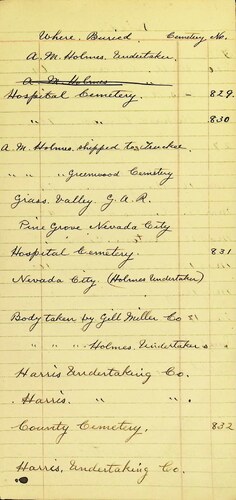 Where Buried Cemetery No.
A. M. Holmes. Undertaker.
A. M. Holmes "
Hospital Cemetery. " 829.
" " 830
A. M. Holmes. shipped to Truckee.
" " " Greenwood Cemetery
Grass Valley. G. A. R.
Pine Grove Nevada City
Hospital Cemetery. 831
Nevada City (Holmes Undertaker)
Body taken by Gill Miller Co
" " " Holmes. Undertaker
Harris Undertaking Co.
" Harris. " "
County Cemetery. 832
Harris. Undertaking Co.